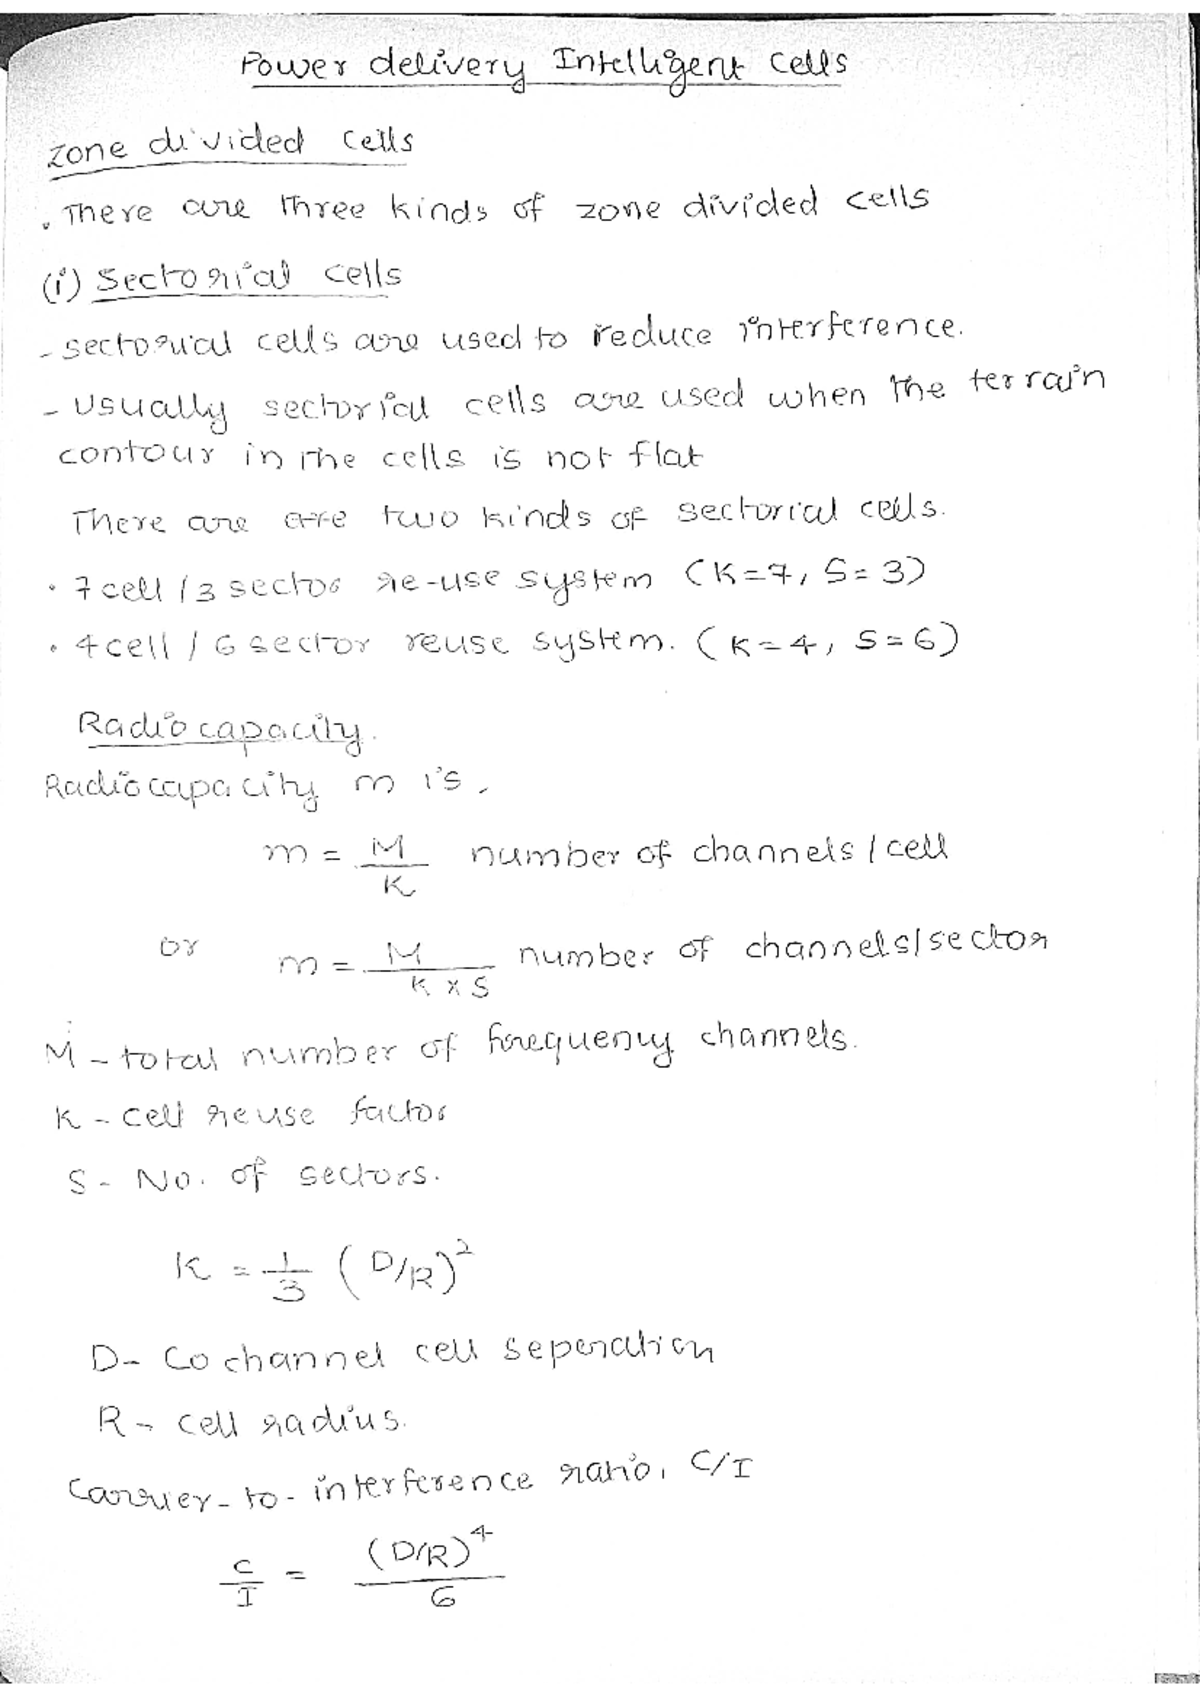 Power delivery Intelligent Cells
Zone divided cells
. There are three kinds of zone divided cells
(i) Sectorial cells
- sectorial cells are used to reduce interference.
- Usually sectorial cells are used when the terrain
contour in the cells is not flat
There are are two kinds of sectorial cells.
• 7 cell / 3 sector re-use system (K=7, S=3)
• 4 cell / 6 sector reuse system. (K=4, S=6)
Radio capacity.
Radio capacity m is,
m = M/K number of channels / cell
or m = M/(K x S) number of channels/sector
M - total number of frequency channels.
K - cell reuse factor
S - No. of sectors.
K = 1/3 (D/R)²
D - Co channel cell seperation
R - cell radius.
Carrier-to-interference ratio, C/I
C/I = (D/R)⁴/6